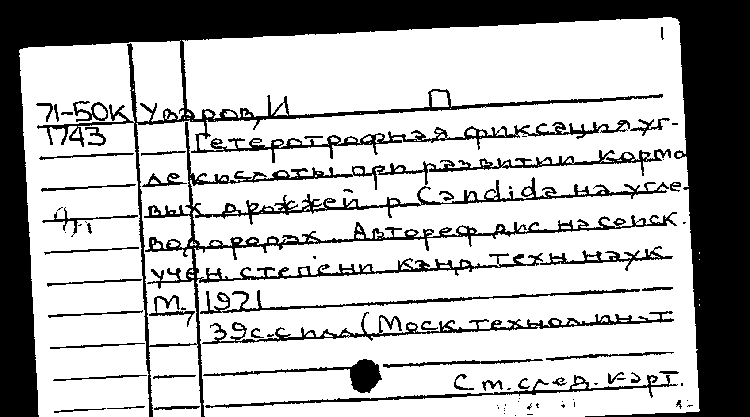 1
71-50К Уваров, И П
1743 Гетеротрофная фиксация уг-
лекислоты при развитии кормо
вых дрожжей р Candida на угле-
водородах Автореф дис на соиск.
учен. степени канд. техн. наук
М., 1971
39с. с илл (Моск. технол. ин-т
См. след. карт.